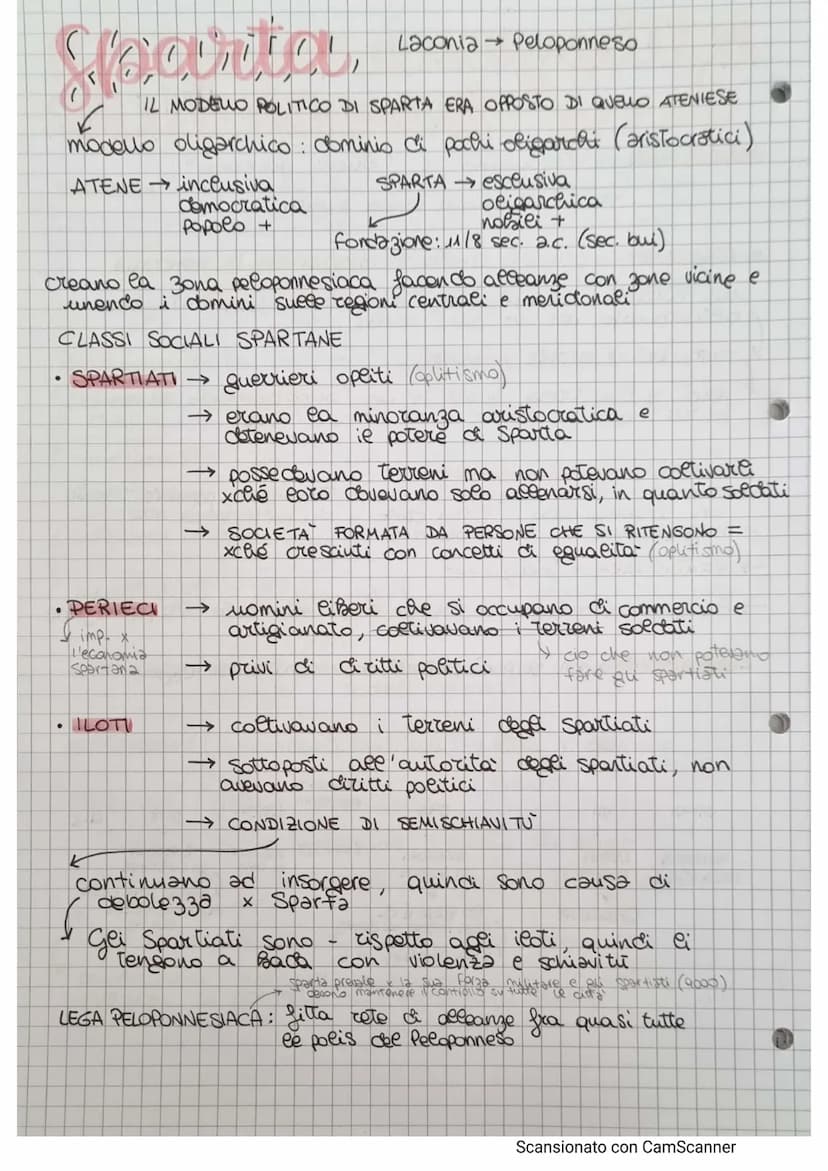 Sparta,
Laconia → Peloponneso
IL MODELLO POLITICO DI SPARTA ERA OPPOSTO DI QUELLO ATENIESE
modello oligarchico : dominio di pochi oligarchi (aristocratici)
ATENE → inclusiva
democratica
popolo +
SPARTA → esclusiva
oligarchica
nobili +
fondazione: 11/8 sec. a.c. (sec. bui)
creano la zona peloponnesiaca facendo alleanze con zone vicine e
unendo i domini sulle regioni centrali e meridonali
CLASSI SOCIALI SPARTANE
• SPARTIATI → guerrieri opliti (oplitismo)
→ erano la minoranza aristocratica e
detenevano il potere di Sparta
→ possedevano terreni ma non potevano coltivarli
xché loro dovevano solo allenarsi, in quanto soldati
→ SOCIETÀ FORMATA DA PERSONE CHE SI RITENGONO =
xché cresciuti con concetti di egualità (oplitismo)
• PERIECI → uomini liberi che si occupano di commercio e
artigianato, coltivavano i terreni soldati
imp. x
l'economia
spartana
ciò che non potevano
fare gli spartiati
→ privi di diritti politici
• ILOTI → coltivavano i terreni degli spartiati
→ sottoposti all'autorità degli spartiati, non
avevano diritti politici
→ CONDIZIONE DI SEMISCHIAVITÙ
continuano ad insorgere, quindi sono causa di
debolezza x Sparta
Gli Spartiati sono - rispetto agli iloti, quindi li
tengono a bada con violenza e schiavitù
sparta prevale x la sua forza militare e gli spartiati (9000)
devono mantenere il controllo su tutte le città
LEGA PELOPONNESIACA: fitta rete di alleanze fra quasi tutte
le poleis del Peloponneso
Scansionato con CamScanner